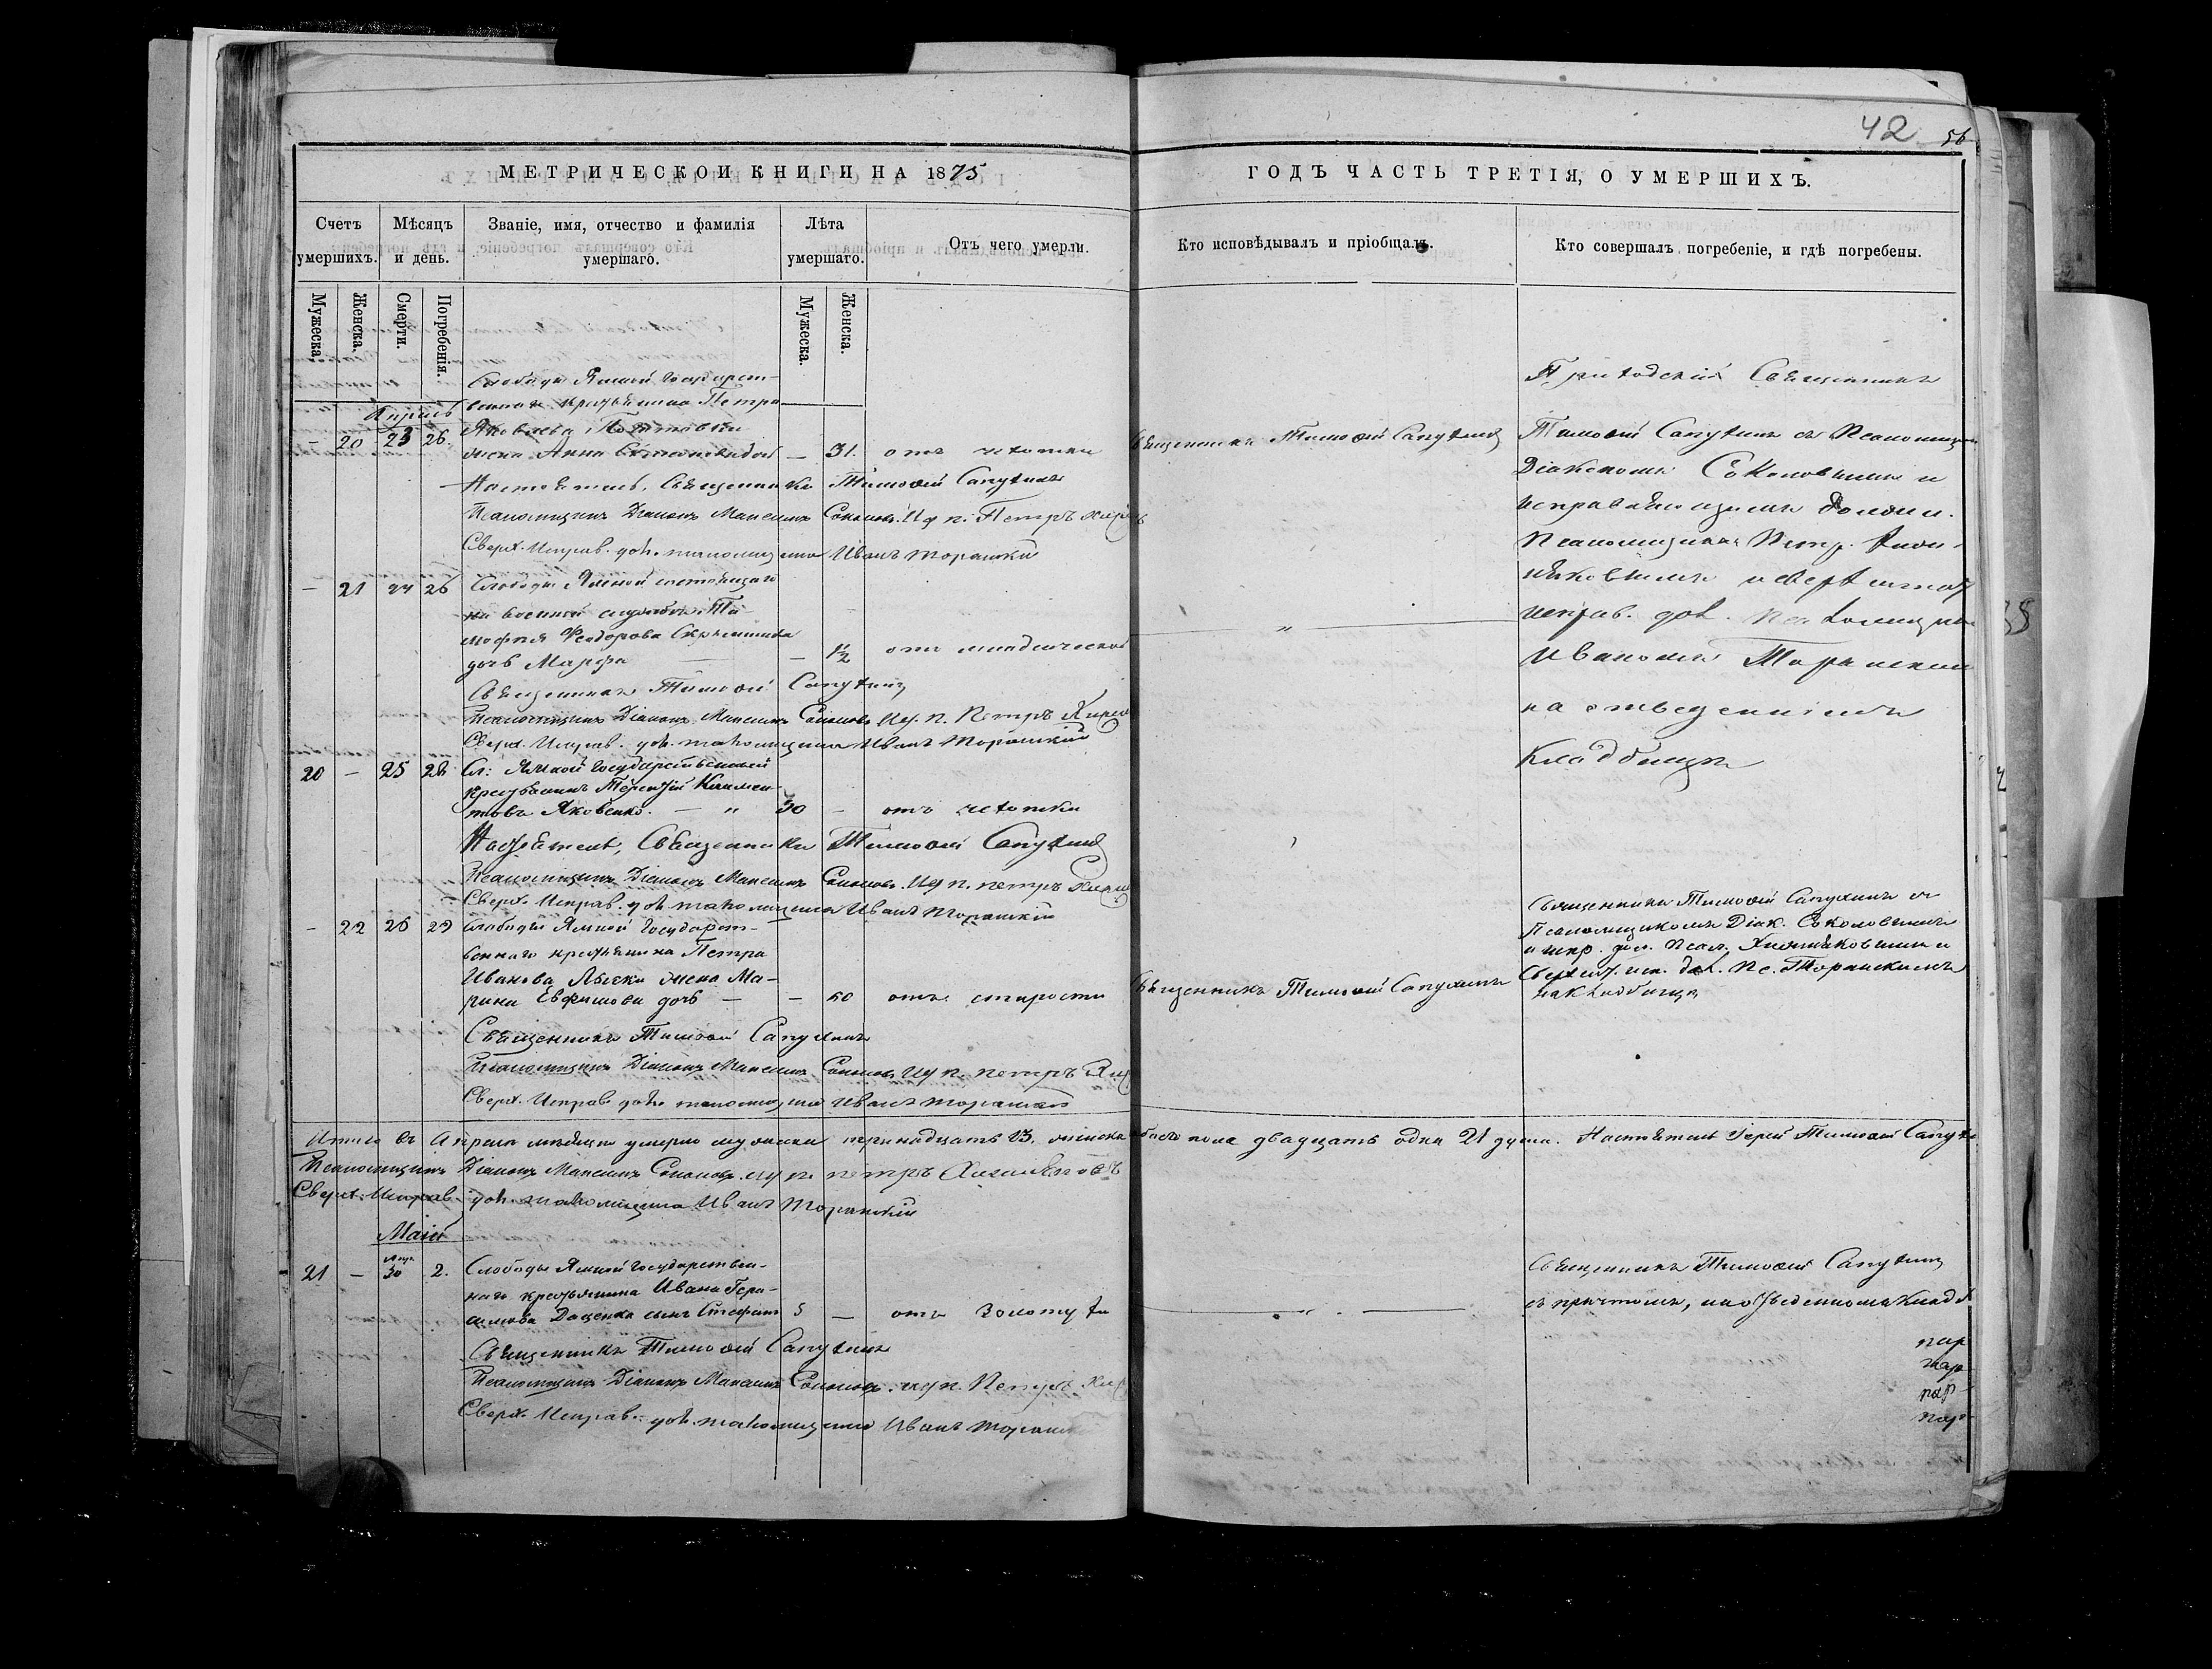 42 56
МЕТРИЧЕСКОЙ КНИГИ НА 1875
ГОДЪ ЧАСТЬ ТРЕТІЯ, О УМЕРШИХЪ.
Счетъ умершихъ.
Мѣсяцъ и день.
Званіе, имя, отчество и фамилія умершаго.
Лѣта умершаго.
Отъ чего умерли.
Кто исповѣдывалъ и пріобщалъ.
Кто совершалъ погребеніе, и гдѣ погребены.
Мужеска.
Женска.
Смерти.
Погребенія.
Мужеска.
Женска.
Апрель
Слободы Ямной Государст-
веннаго крестьянина Петра
Яковлева
— 20 23 26. жена Анна — 31. отъ чахотки
Священникъ Тимофей Сапухинъ
Настоятель, Священникъ Тимофей Сапухинъ
Псаломщикъ Діаконъ Максимъ Соколовъ. И д п. Петръ
Сверх. Исправ. дол. псаломщика Иванъ Торанский
Приходскій Священникъ
Тимофей Сапухинъ съ Псаломщи
Діакономъ Соколовымъ и
исправляющимъ должн.
Псаломщика Петр.
и сверхштат
исправ. дол. псаломщика
Иваномъ Торанским
на отведенномъ
кладбище
— 21 24 26 Слободы Ямной состоящаго
на военной службѣ Ти-
мофея Феодорова
дочь Марфа — 1/2 отъ младенческой
Священникъ Тимофей Сапухинъ
Псаломщикъ Діаконъ Максимъ Соколовъ И д. п. Петръ
Сверх. Исправ. дол. псаломщика Иванъ Торанский
20 — 25 28 Сл: Ямной Государственный
крестьянинъ Терентій Климен-
товъ Яковенко. — " 30 — отъ чахотки
Настоятель, Священникъ Тимофей Сапухинъ
Псаломщикъ Діаконъ Максимъ Соколовъ. И д п. Петръ
Сверх. Исправ. дол. псаломщика Иванъ Торанский
— 22 26 29 Слободы Ямной Государст-
веннаго крестьянина Петра
Иванова жена Ма-
рина Евфимова дочь — — 50 отъ старости
Священникъ Тимофей Сапухинъ
Священникъ Тимофей Сапухинъ съ
Псаломщикомъ Діак. Соколовымъ
и испр. дол. Псал.
Сверхшт. исп. дол. Пс. Торанскимъ
на кладбище
Священникъ Тимофей Сапухинъ
Псаломщикъ Діаконъ Максимъ Соколовъ И д п. Петръ
Сверх. Исправ. дол. псаломщика Иванъ Торанский
Итого въ Апреле месяце умерло мужска тринадцать 13. женска обаго пола двадцать одна 21 душа. Настоятель Іерей Тимофей Сапух
Псаломщикъ Діаконъ Максимъ Соколовъ. и д п. Петръ
Сверх. Исправ. дол. псаломщика Иванъ Торанский
Маій
21 — Апр. 30 2. Слободы Ямной Государствен-
наго крестьянина Ивана Гера-
симова Даценка сынъ Стефанъ 5 — отъ Золотухи
Священникъ Тимофей Сапухинъ
съ причтомъ, на отведенномъ кладб
Священникъ Тимофей Сапухинъ
Псаломщикъ Діаконъ Максимъ Соколовъ. и д п. Петръ
Сверх. Исправ. дол. псаломщика Иванъ Торанск